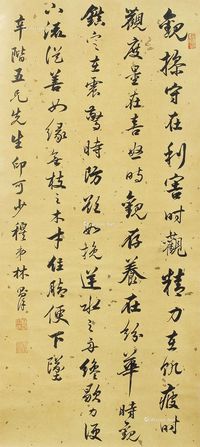 觀操守在利害時觀精力在飢疲時
觀度量在喜怒時觀存養在紛華時觀
鎮定在震驚時防欲如挽逆水之舟纔歇力便
下流從善如緣無枝之木才住腳便下墜
辛階五兄先生印可少穆弟林則徐